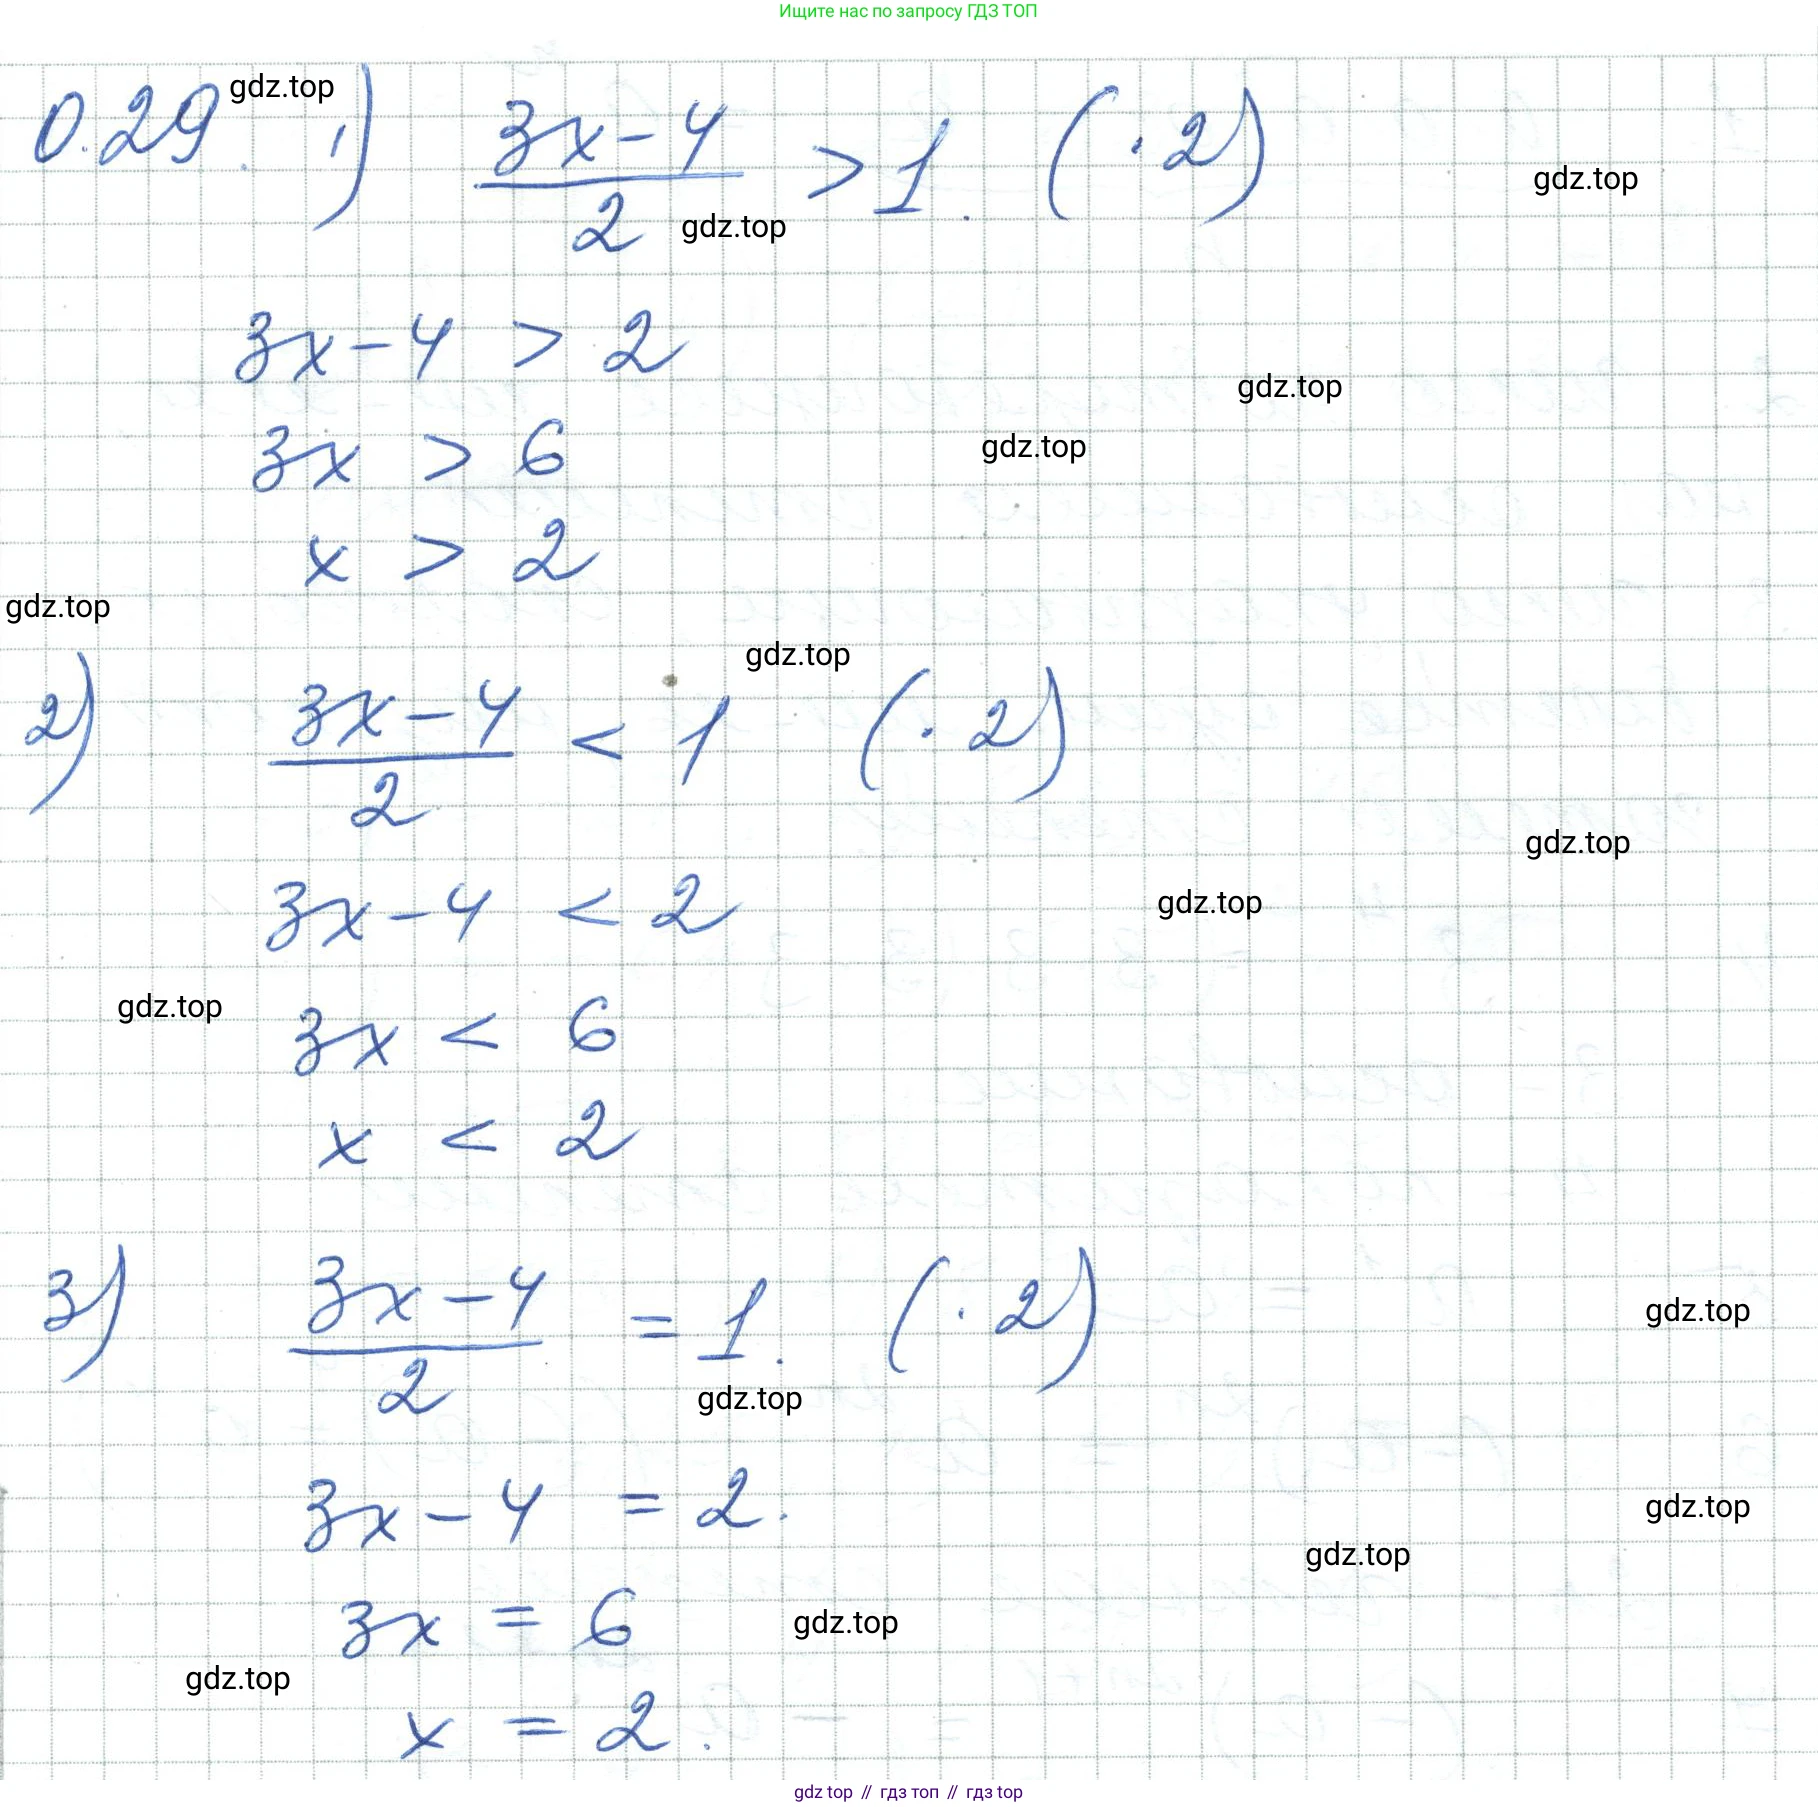 Ищите нас по запросу ГДЗ ТОП
gdz.top
0.29. 1) (3x-4)/2 > 1. (·2)
gdz.top
gdz.top
3x-4 > 2
gdz.top
3x > 6
gdz.top
x > 2
gdz.top
gdz.top
2) (3x-4)/2 < 1 (·2)
gdz.top
3x-4 < 2
gdz.top
gdz.top
3x < 6
x < 2
3) (3x-4)/2 = 1. (·2)
gdz.top
gdz.top
3x-4 = 2.
gdz.top
gdz.top
3x = 6
gdz.top
gdz.top
x = 2.
gdz top // гдз топ // гдз top